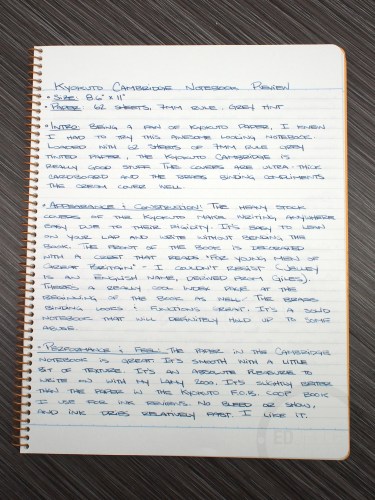 Kyokuto Cambridge Notebook Review
• Size: 8.6" x 11"
• Paper: 62 sheets, 7mm rule, grey tint
• Intro: Being a fan of Kyokuto paper, I knew
I had to try this awesome looking notebook.
Loaded with 62 sheets of 7mm rule grey
tinted paper, the Kyokuto Cambridge is
really good stuff. The covers are ultra-thick
cardboard and the brass binding compliments
the cream cover well.
• Appearance & Construction: The heavy stock
covers of the Kyokuto make writing anywhere
easy due to their rigidity. It's easy to lean
on your lap and write without bending the
book. The front of the book is decorated
with a crest that reads "For young men of
Great Britain" - I couldn't resist (Jelley
is an English name, derived from Giles).
There's a really cool index page at the
beginning of the book as well. The brass
binding looks & functions great. It's a solid
notebook that will definitely hold up to some
abuse.
• Performance & Feel: The paper in the Cambridge
notebook is great. It's smooth with a little
bit of texture. It's an absolute pleasure to
write on with my Lamy 2000. It's slightly better
than the paper in the Kyokuto F.O.B. COOP book
I use for ink reviews. No bleed or show,
and ink dries relatively fast. I like it.
ED